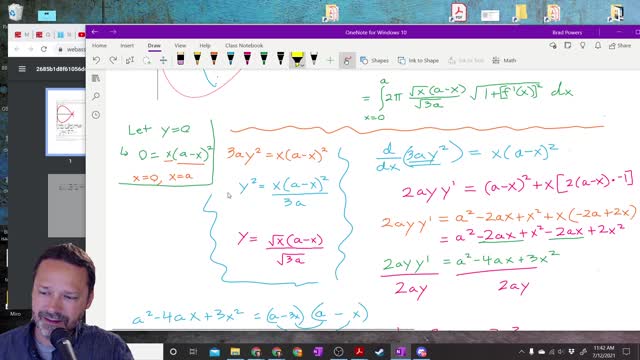 OneNote for Windows 10
Brad Powers
webass
Home Insert Draw View Help Class Notebook
Shapes Ink to Shape Ink to Math
2685b1d8f61056d
= ∫ₓ₌₀ᵃ 2π √x(a-x)/√3a √1+[f'(x)]² dx
Let y=0
↳ 0 = x(a-x)²
x=0, x=a
3ay² = x(a-x)²
y² = x(a-x)²/3a
y = √x(a-x)/√3a
d/dx (3ay²) = x(a-x)²
2ayy' = (a-x)² + x[2(a-x)·-1]
2ayy' = a²-2ax+x²+x(-2a+2x)
= a²-2ax+x²-2ax+2x²
2ayy'/2ay = a²-4ax+3x²/2ay
a²-4ax+3x² = (a-3x)(a-x)
Miro
11:42 AM
7/12/2021